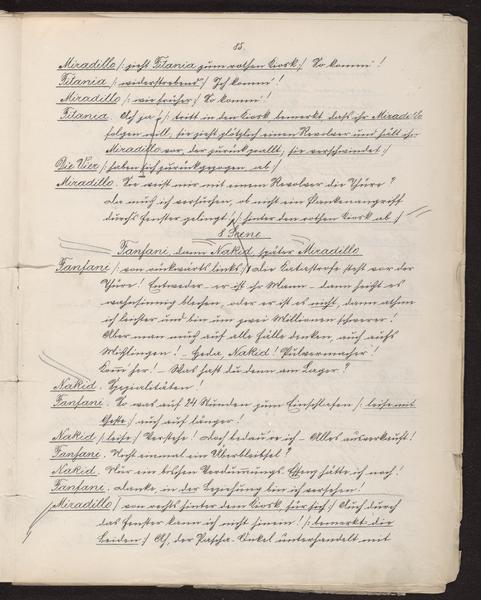 85.
Miradillo /: zieht Titania zum rothen Kiosk :/ So komm!
Titania /: widerstrebend :/ Ich komm!
Miradillo /: wie früher :/ So komm!
Titania Ach ja /: tritt in den Kiosk bemerkt, dass ihr Miradillo
folgen will, sie zieht plötzlich einen Revolver und hält ihn
Miradillo vor, der zurückprallt, sie verschwindet :/
Die Vier /: haben sich zurückgezogen ab :/
Miradillo. Sie weist mir mit einem Revolver die Thüre?
Da muß ich versuchen, ob nicht ein Flankenangriff
durchs Fenster gelingt /: hinter den rothen Kiosk ab :/
8 Scene
Fanfani, dann Nakid, später Miradillo
Fanfani /: von rückwärts links :/ die Catastrofe steht vor der
Thüre! Entweder er ist ihr Mann – dann heißt es
wahnsinnig bleiben, oder er ist es nicht, dann athme
ich leichter und bin um zwei Millionen schwerer!
Aber man muß auf alle Fälle denken, auch aufs
Mißlingen! – Heda, Nakid! Pulvermacher!
Komm her! – Was hast du denn am Lager?
Nakid. Spezialitäten!
Fanfani. So was auf 24 Stunden zum Einschlafen /: leise mit
Geste :/ auch auf länger!
Nakid /: leise :/ Verstehe! Doch bedaure ich – Alles ausverkauft!
Fanfani. Nicht einmal ein Überbleibsel?
Nakid. Nur ein bischen Verdauungs-Essenz hätte ich noch!
Fanfani. danke, in der Beziehung bin ich versehen!
Miradillo /: von rechts hinter dem Kiosk für sich :/ Auch durch
das Fenster kann ich nicht hinein! /: bemerkt die
Beiden :/ Ah, der Pascha-Onkel unterhandelt mit